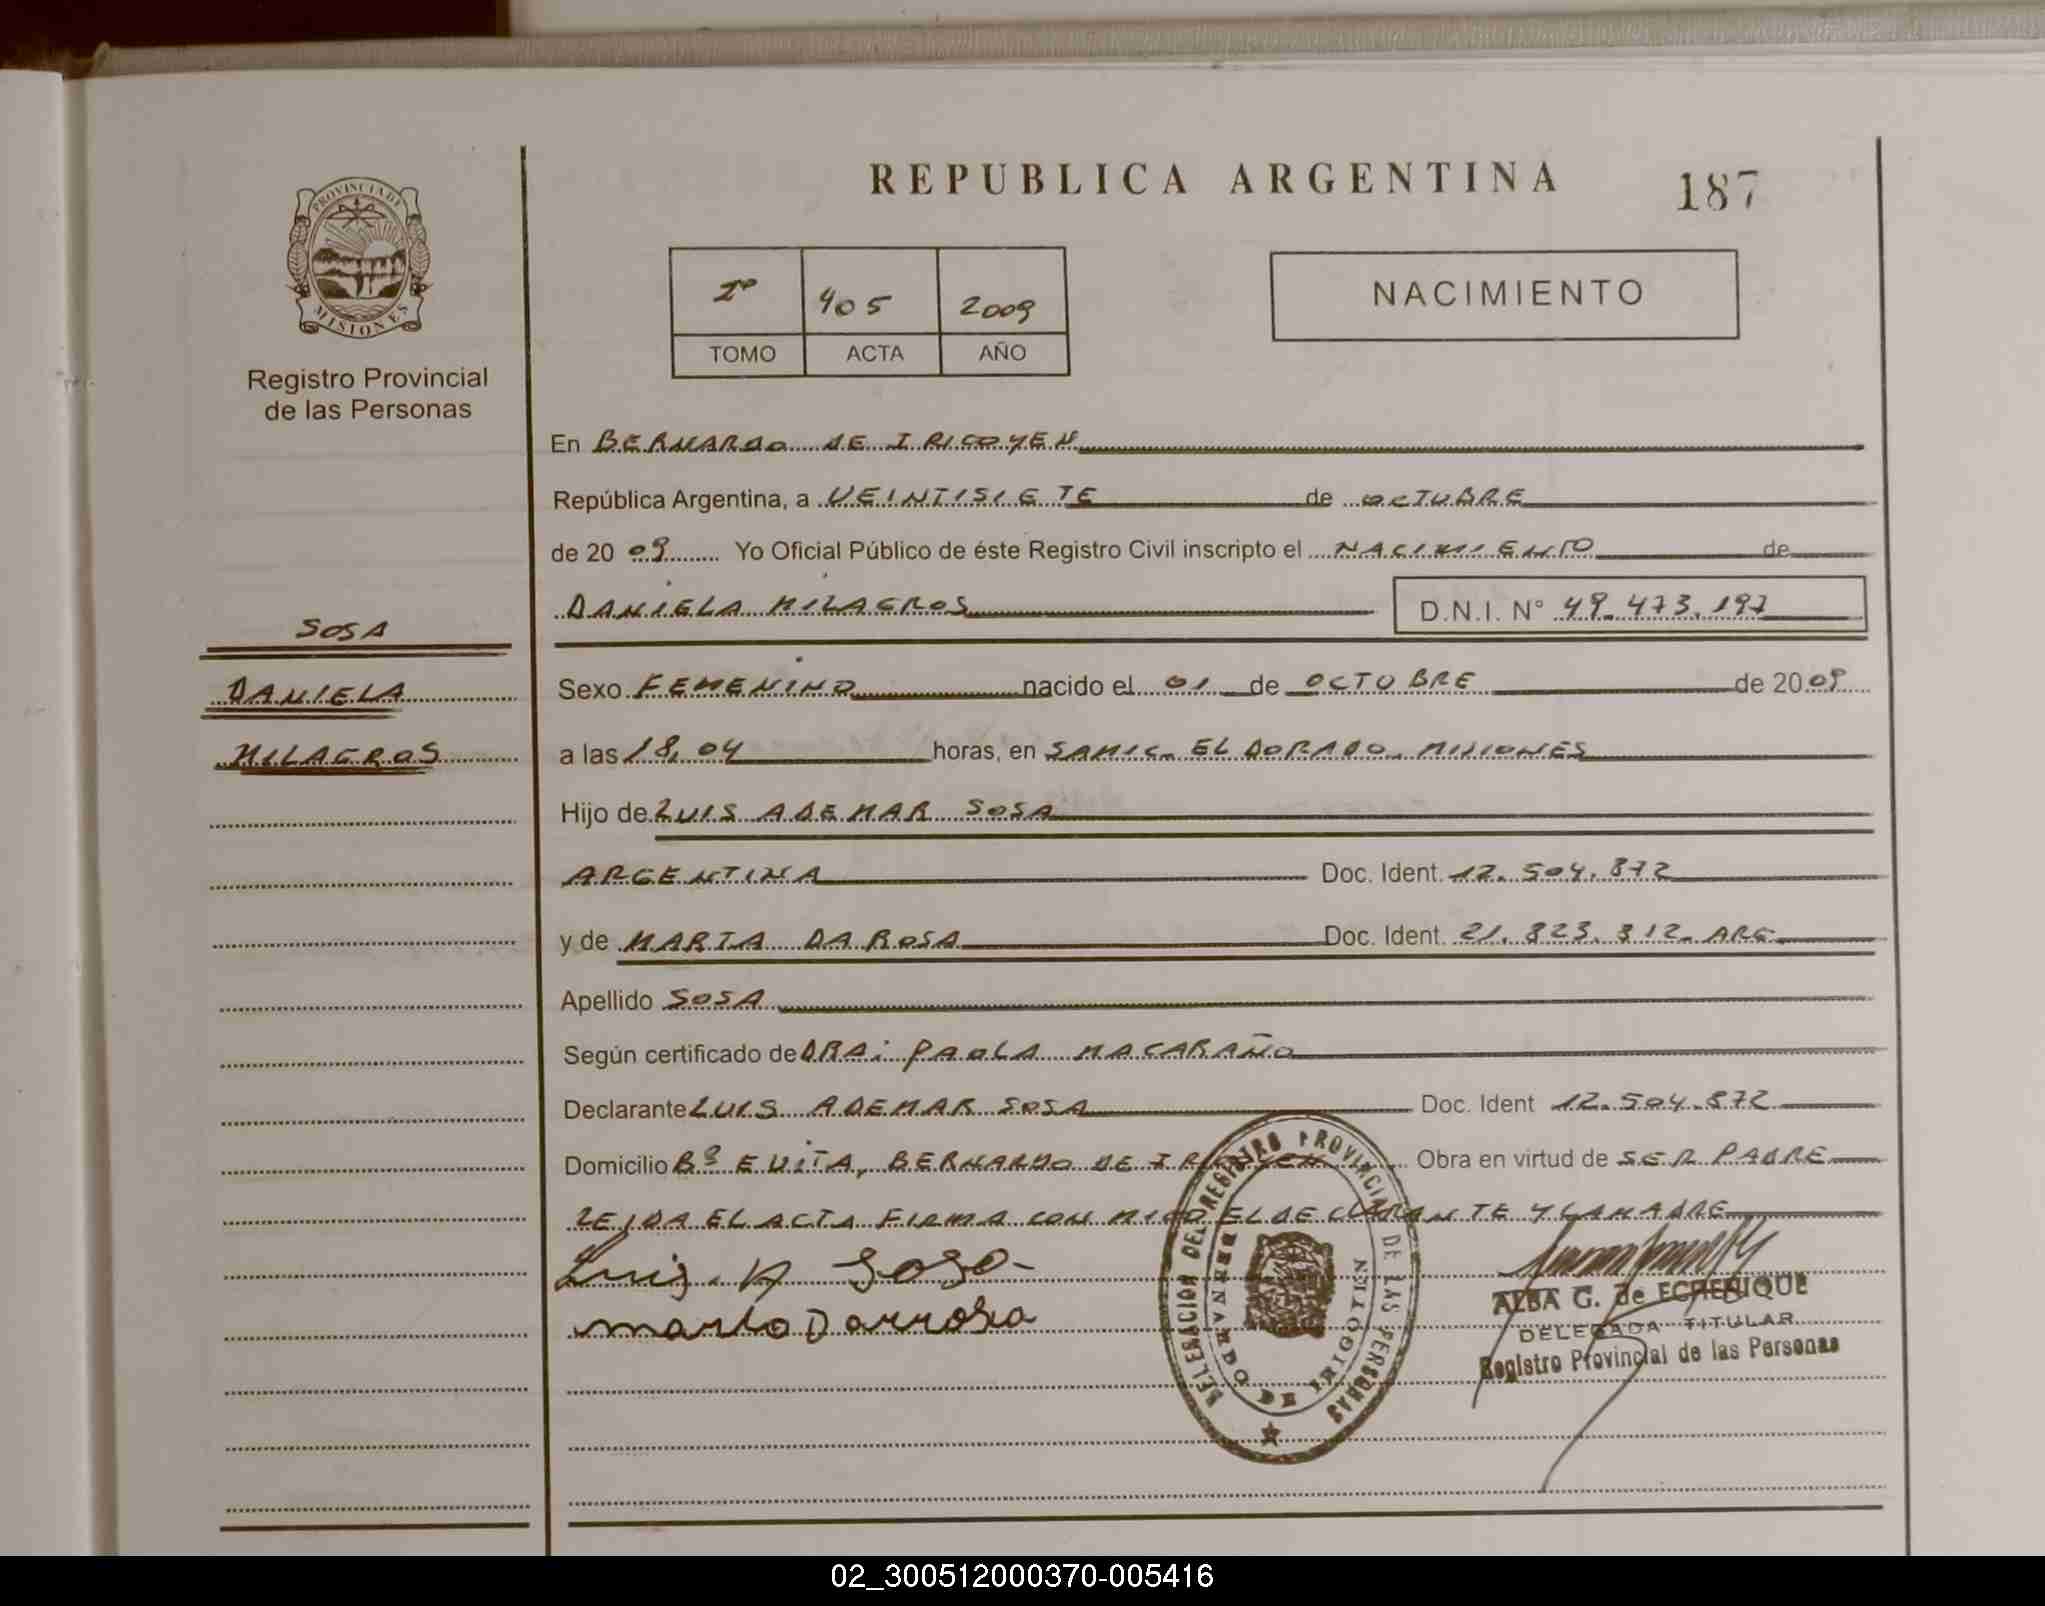 REPUBLICA ARGENTINA
187
PROVINCIA DE
MISIONES
Registro Provincial
de las Personas
2º 405 2009
TOMO ACTA AÑO
NACIMIENTO
En BERNARDO DE IRIGOYEN
República Argentina, a VEINTISIETE de OCTUBRE
de 2009 Yo Oficial Público de éste Registro Civil inscripto el NACIMIENTO de
DANIELA MILAGROS D.N.I. N° 49.473.197
SOSA
DANIELA
MILAGROS
Sexo FEMENINO nacido el 01 de OCTUBRE de 2009
a las 18,04 horas, en SAMIC. ELDORADO. MISIONES
Hijo de LUIS ADEMAR SOSA
ARGENTINA Doc. Ident. 12.504.872
y de MARIA DA ROSA Doc. Ident. 21.823.312. ARG.
Apellido SOSA
Según certificado de DRA: PAOLA MACARAÑO
Declarante LUIS ADEMAR SOSA Doc. Ident 12.504.872
Domicilio Bº EVITA, BERNARDO DE IRIGOYEN Obra en virtud de SER PADRE
LEIDA EL ACTA FIRMA CON MIGO EL DECLARANTE Y LA MADRE
Luis. A Sosa
DELEGACION DEL REGISTRO PROVINCIAL DE LAS PERSONAS
BERNARDO DE IRIGOYEN
ALBA G. de ECHENIQUE
DELEGADA TITULAR
Registro Provincial de las Personas
02_300512000370-005416